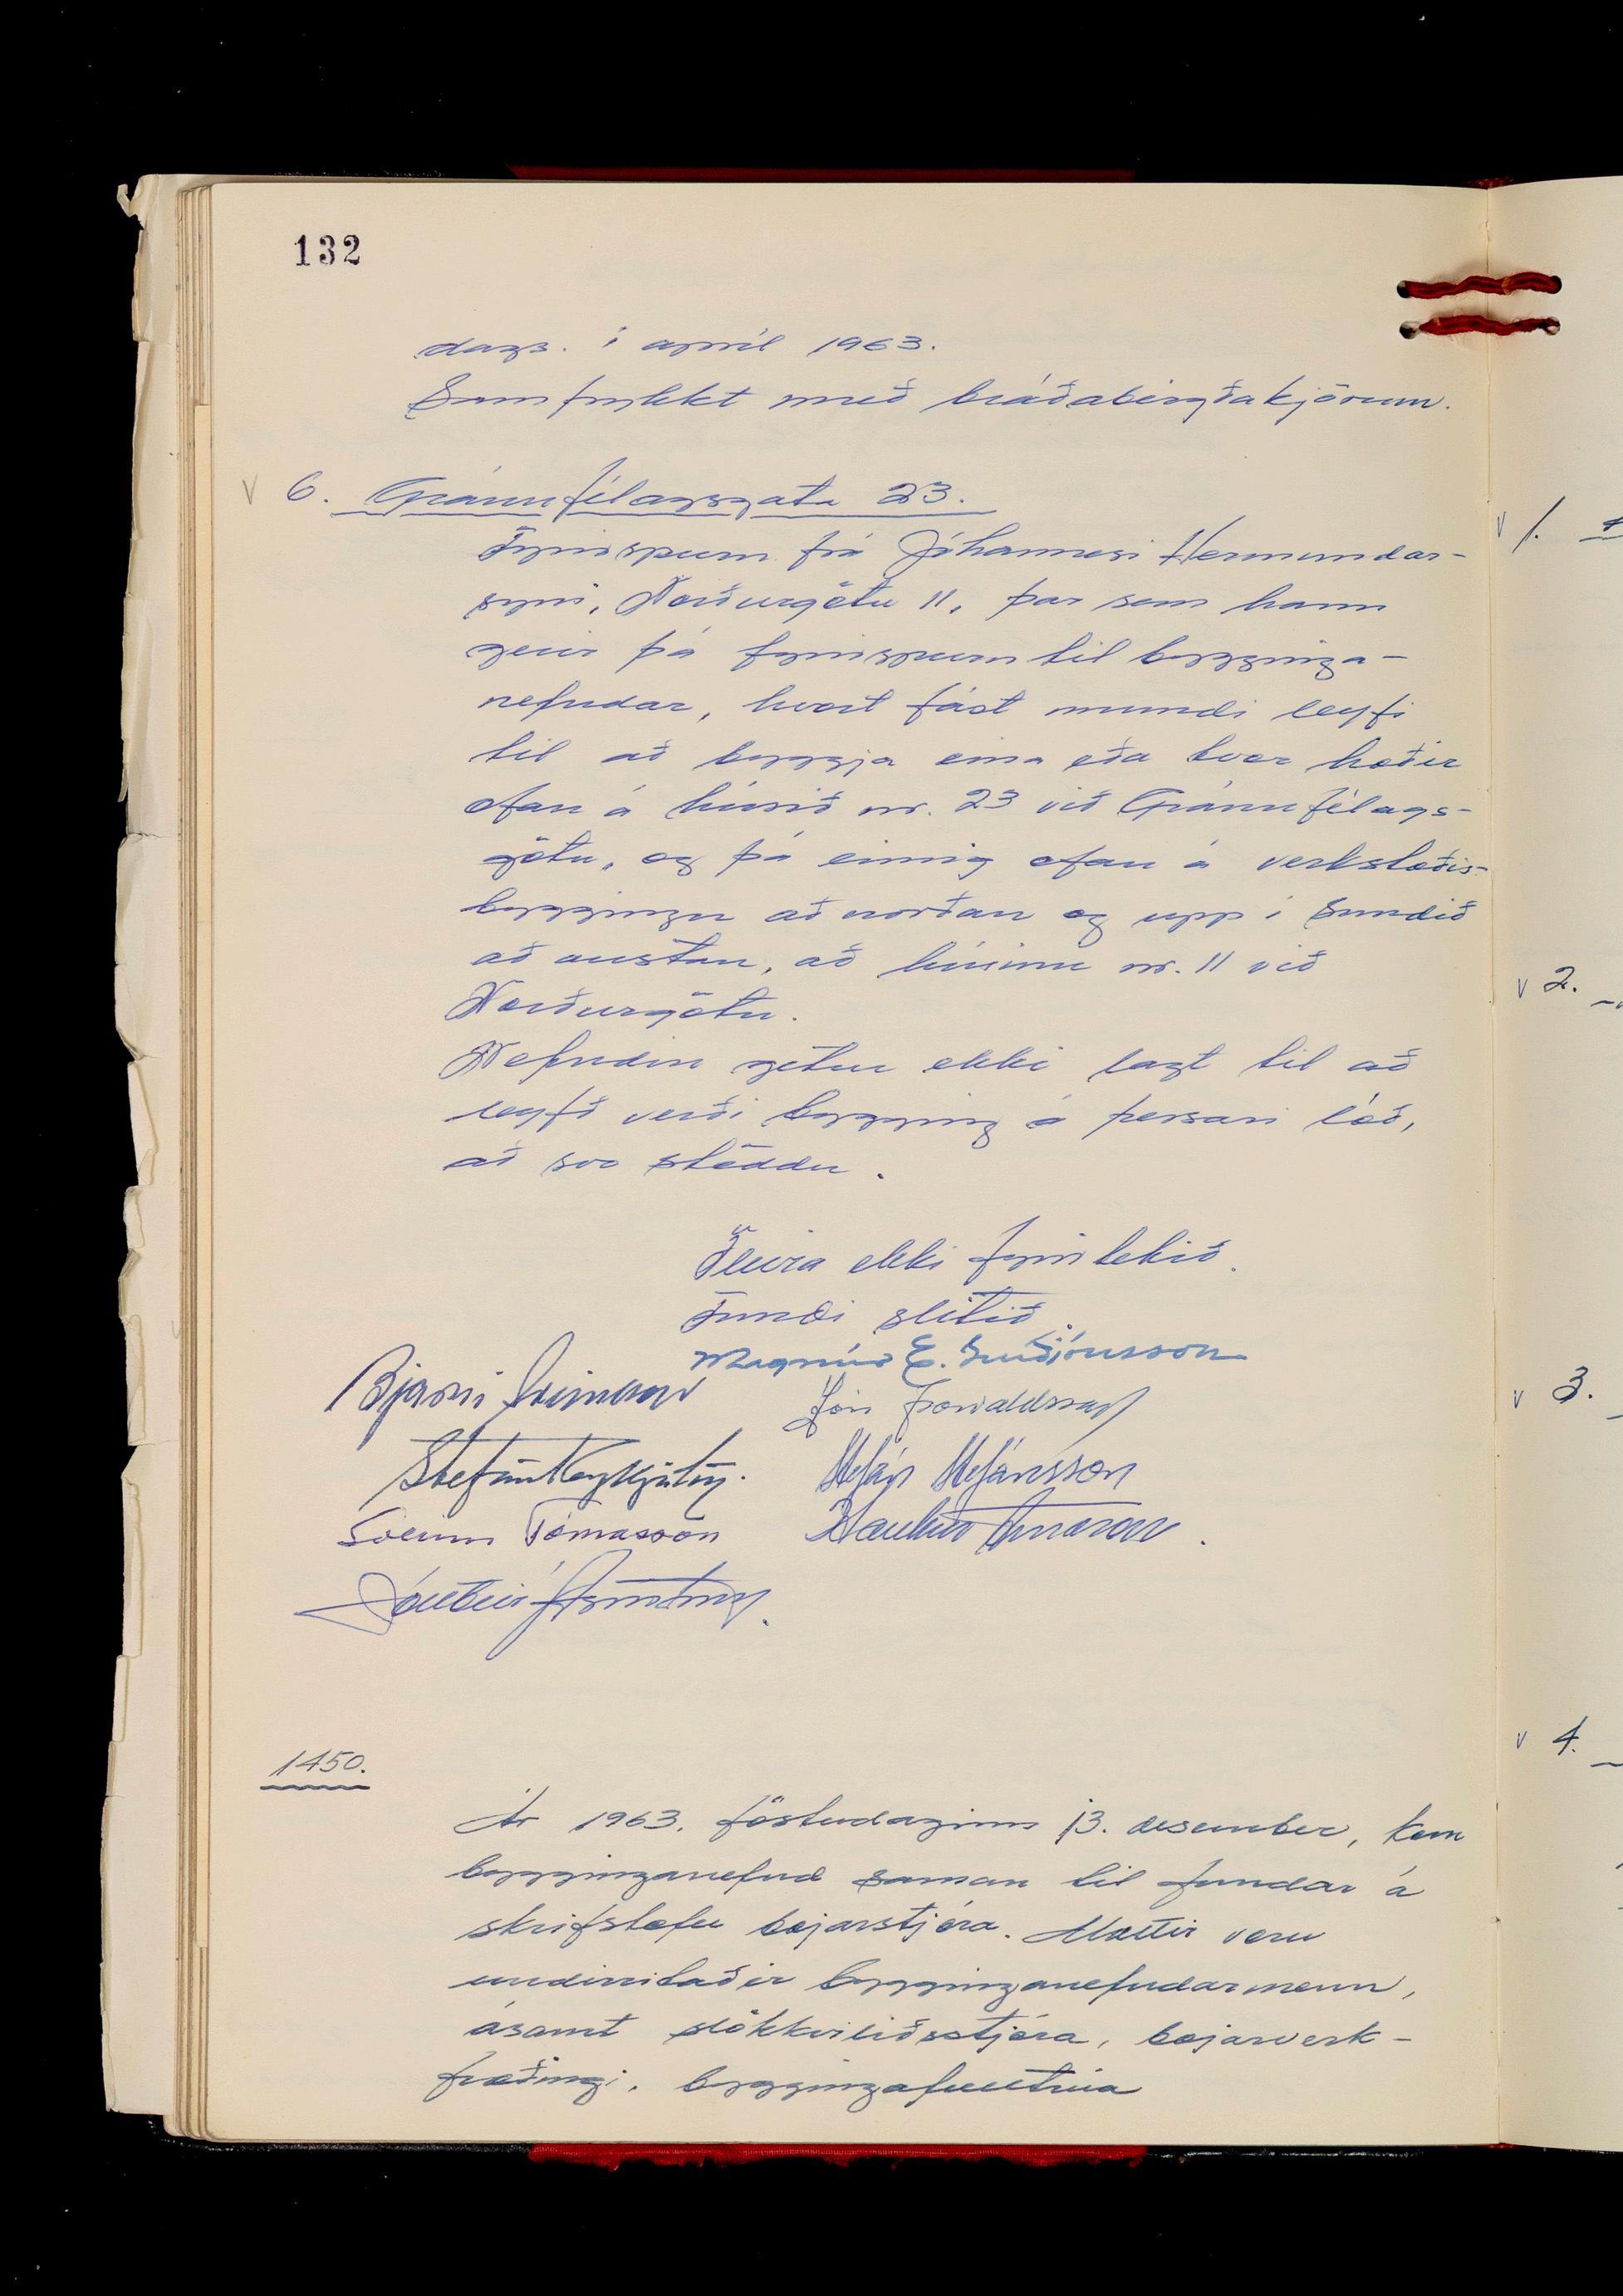 132
dags. í apríl 1963.
Samþykkt með bráðabirgðakjörum.
v 6. Gránufélagsgata 23.
Fyrirspurn frá Jóhannesi Hermundar-
syni, Norðurgötu 11, þar sem hann
gerir þá fyrirspurn til bygginga-
nefndar, hvort fást mundi leyfi
til að byggja eina eða tvær hæðir
ofan á húsið nr. 23 við Gránufélags-
götu, og þá einnig ofan á verkstæðis-
byggingu að norðan og upp í sundið
að austan, að húsinu nr. 11 við
Norðurgötu.
Nefndin getur ekki lagt til að
leyfð verði bygging á þessari lóð,
að svo stöddu.
Fleira ekki fyrirtekið.
Fundi slitið.
Magnús E. Guðjónsson
Bjarni Sveinsson
Jón Þorvaldsson
Stefán Reykjalín.
Stefán Stefánsson
Sveinn Tómasson
Haukur Árnason.
1450.
Ár 1963, föstudaginn 13. desember, kom
bygginganefnd saman til fundar á
skrifstofu bæjarstjóra. Mættir voru
undirritaðir bygginganefndarmenn,
ásamt slökkviliðsstjóra, bæjarverk-
fræðingi, byggingafulltrúa
v 1.
v 2.
v 3.
v 4.